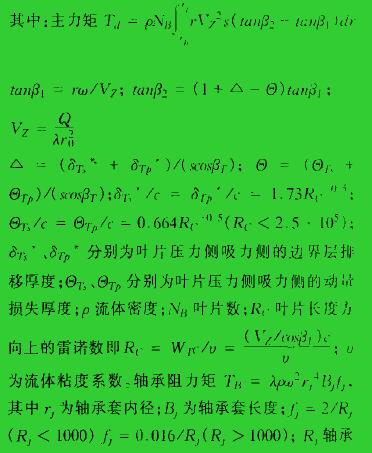 其中:主力矩 T_d = ρN_B∫rV_Z²s(tanβ₂ - tanβ₁)dr
tanβ₁ = rω/V_Z; tanβ₂ = (1 + △ - Θ)tanβ₁;
V_Z = Q/λr₀²
△ = (δ_Ts* + δ_Tp*)/(scosβ_T); Θ = (Θ_Ts +
Θ_Tp)/(scosβ_T);δ_Ts*/c = δ_Tp*/c = 1.73R_C^-0.5;
Θ_Ts/c = Θ_Tp/c = 0.664R_C^-0.5(R_C < 2.5 · 10⁵);
δ_Ts*、δ_Tp* 分别为叶片压力侧吸力侧的边界层排
移厚度;Θ_Ts、Θ_Tp 分别为叶片压力侧吸力侧的动量
损失厚度;ρ 流体密度;N_B 叶片数;R_C 叶片长度方
向上的雷诺数即R_C = W_FC/υ = (V_Z/cosβ₁)c/υ; υ
为流体粘度系数。轴承阻力矩 T_B = λρω²r_J⁴B_Jf_J,
其中 r_J 为轴承套内径;B_J 为轴承套长度;f_J = 2/R_J
(R_J < 1000) f_J = 0.016/R_J(R_J > 1000); R_J 轴承